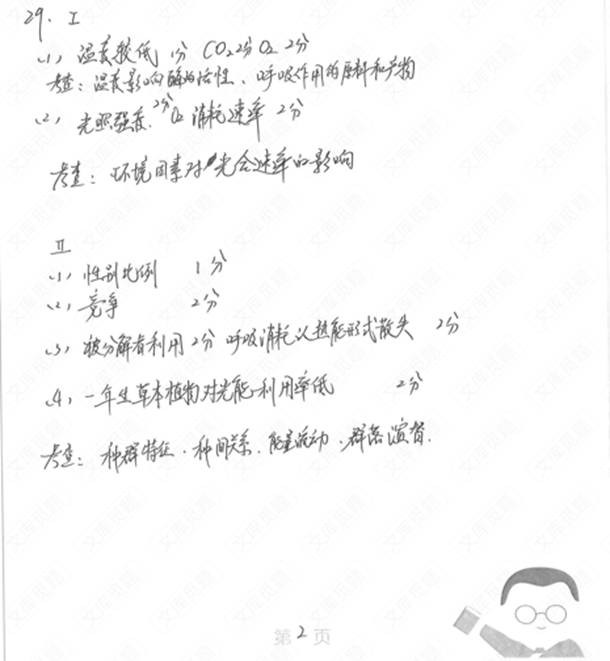 29. I
(1) 温度较低 1分 CO₂ 2分 O₂ 2分
考查：温度影响酶的活性、呼吸作用的原料和产物
(2) 光照强度 2分 O₂消耗速率 2分
考查：环境因素对光合速率的影响
II
(1) 性别比例 1分
(2) 竞争 2分
(3) 被分解者利用 2分 呼吸消耗以热能形式散失 2分
(4) 一年生草本植物对光能利用率低 2分
考查：种群特征、种间关系、能量流动、群落演替.
第2页